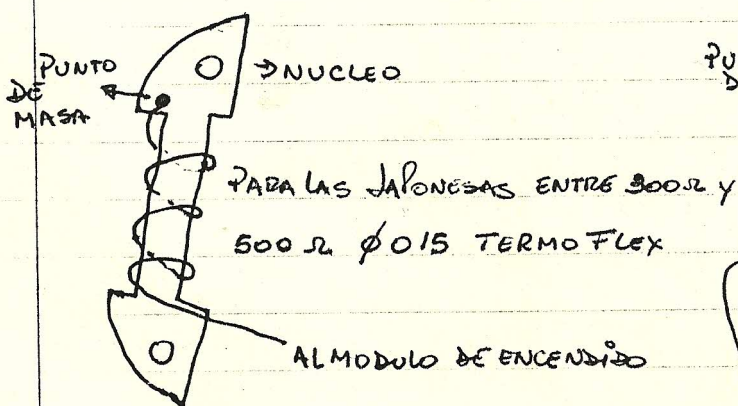 PUNTO
DE
MASA
→ NUCLEO
PU
D
PARA LAS JAPONESAS ENTRE 300Ω Y
500 Ω Ø 015 TERMO FLEX
AL MODULO DE ENCENDIDO